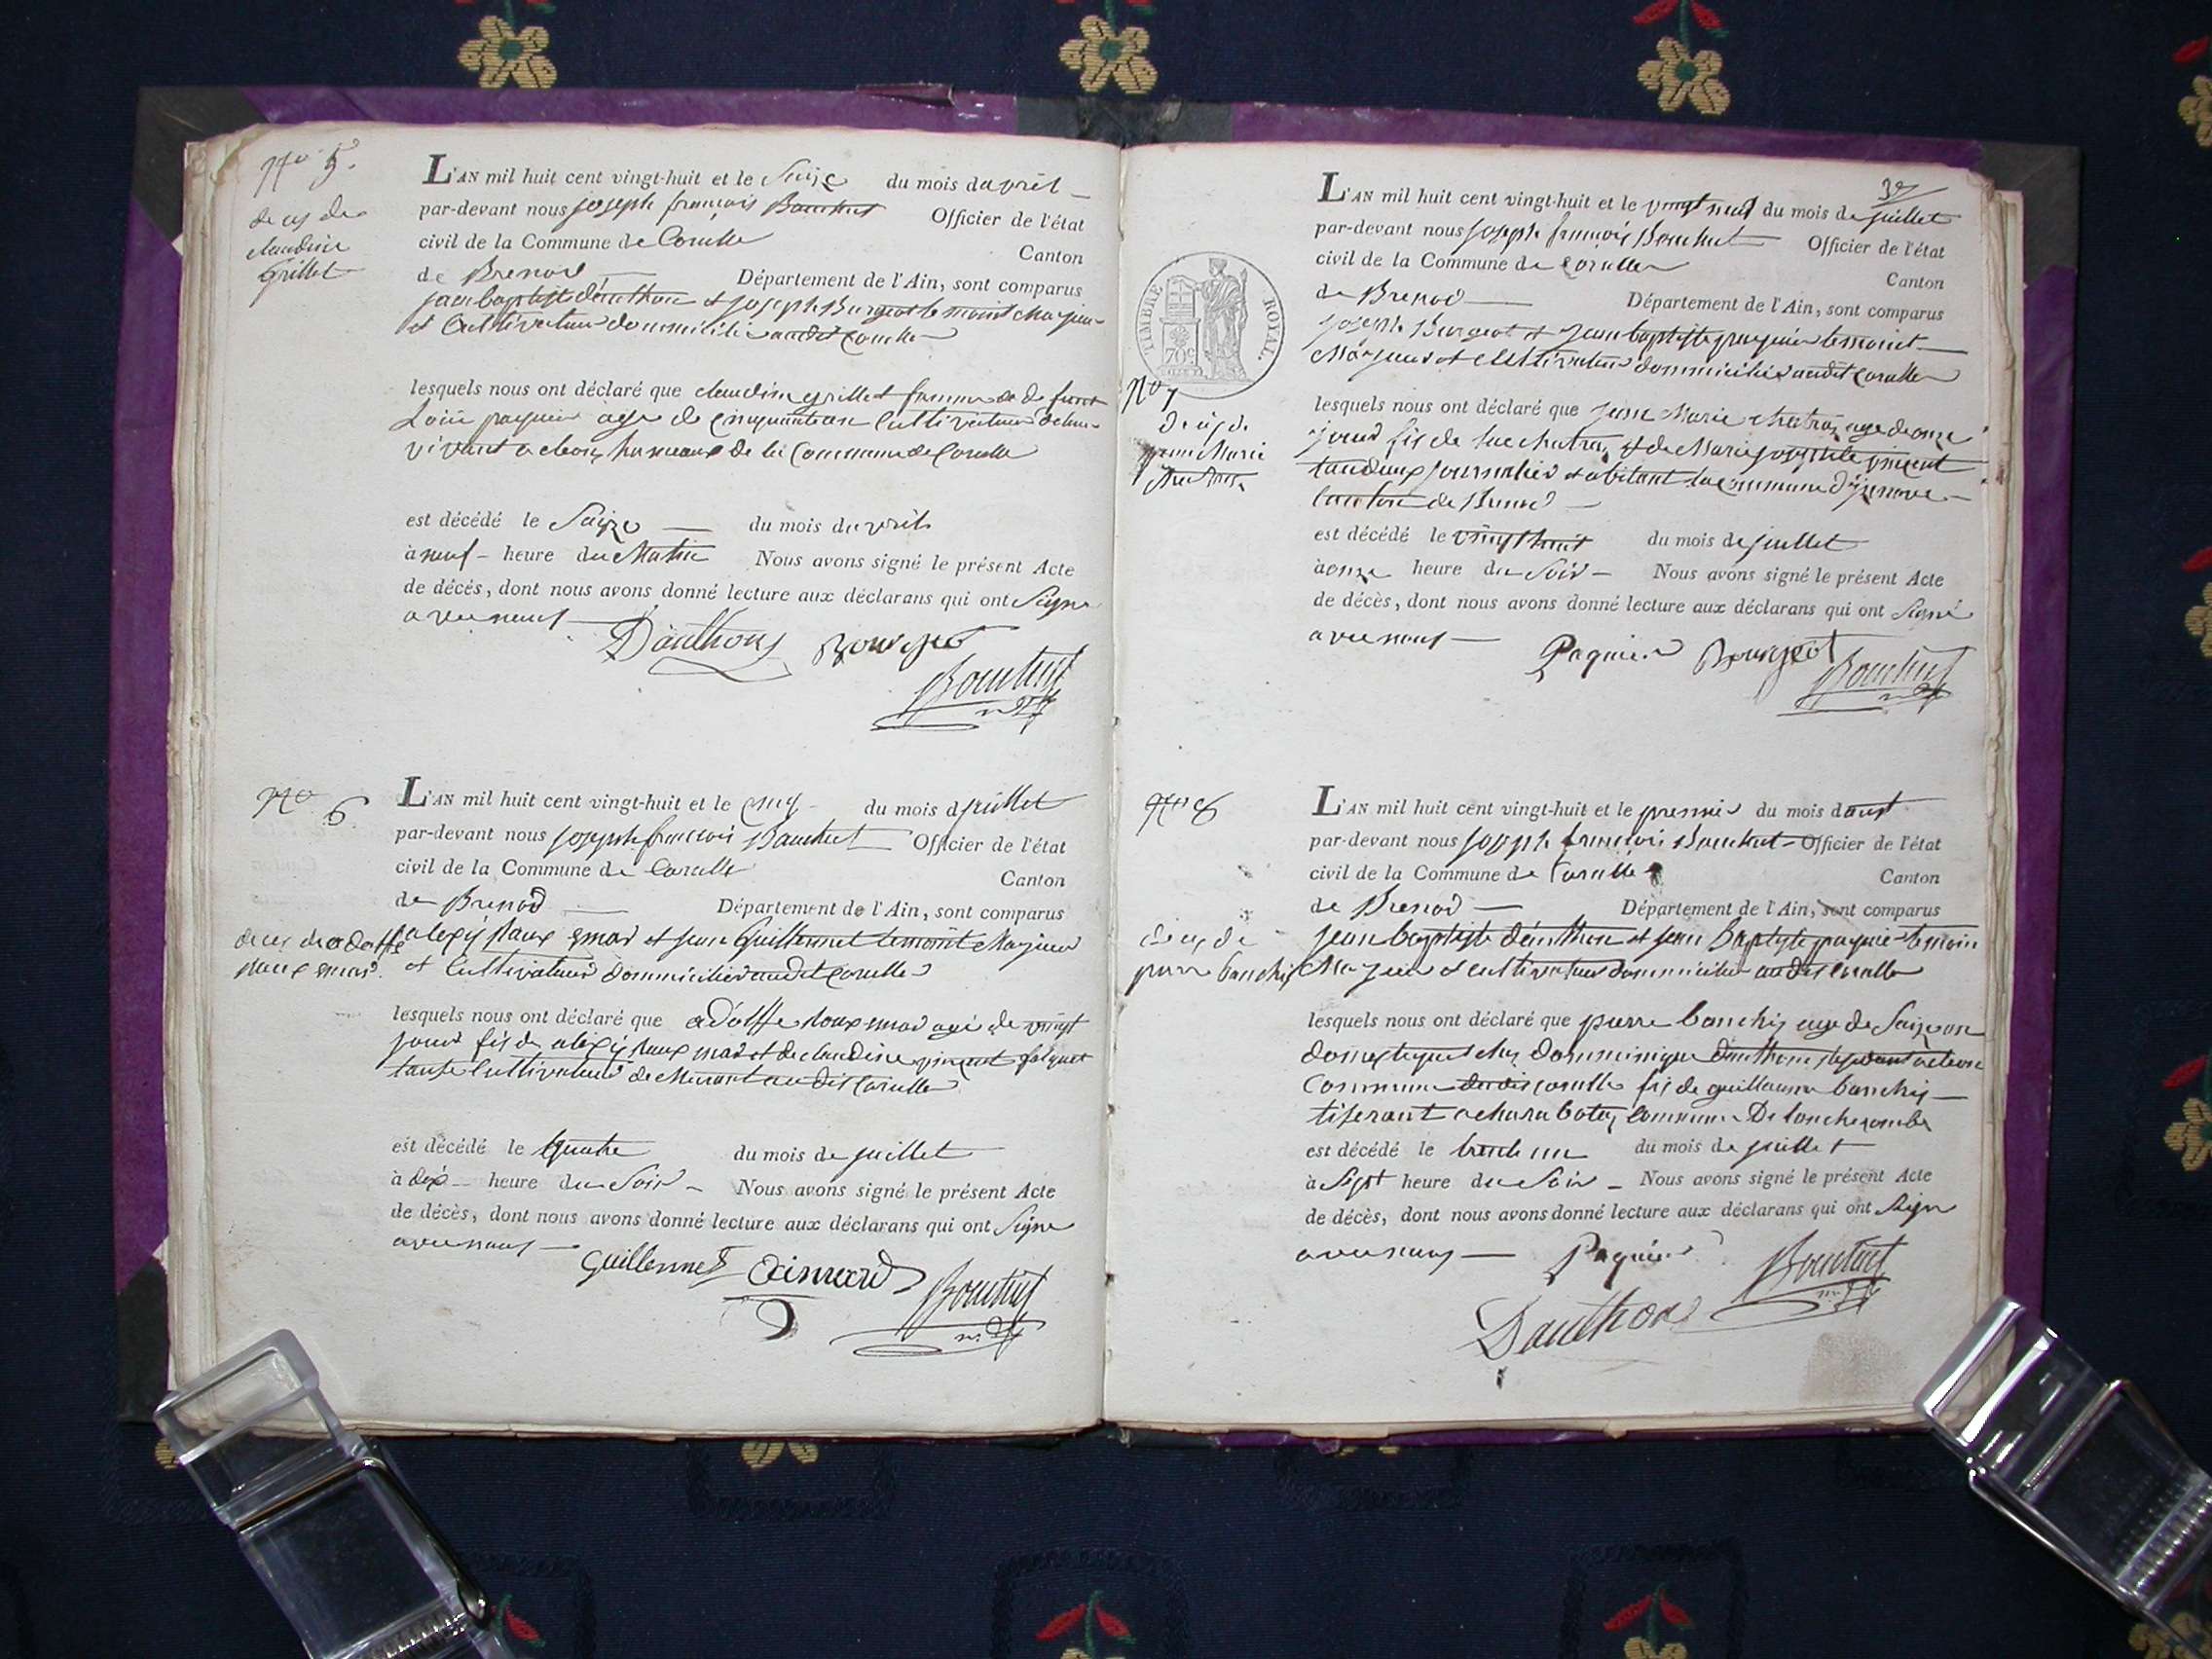 No 5.
deces de
claudine
Grillet
L'AN mil huit cent vingt-huit et le Saize du mois davril
par-devant nous joseph françois Bouchut Officier de l'état
civil de la Commune de Corcelle Canton
de Brenod Département de l'Ain, sont comparus
jean baptiste dauthon et joseph Burgeot temoint Majeur
et Cultivateur dommicilié audit Corcelle
lesquels nous ont déclaré que claudine grillet femme de
Loui paquier age de cinquante an Cultivateur
vivant a hameaux de la Commune de Corcelle
est décédé le Saize du mois davril
à neuf heure du Matin Nous avons signé le présent Acte
de décès, dont nous avons donné lecture aux déclarans qui ont Signe
avec nous
Dauthon Bourgeot
Bouchut
No 6
deces de adolffe
roux emar
L'AN mil huit cent vingt-huit et le cinq du mois d juillet
par-devant nous joseph francois Bouchut Officier de l'état
civil de la Commune de Corcelle Canton
de Brenod Département de l'Ain, sont comparus
alexis roux emar et jean Guillermet temoint Majeur
et Cultivateur dommicilié audit Corcelle
lesquels nous ont déclaré que adolffe roux emar agé de vingt
jour fis de alexis roux emar et de claudine vincent falquet
tause Cultivateur demeurant audit Corcelle
est décédé le quatre du mois de juillet
à dix heure du Soir Nous avons signé le présent Acte
de décès, dont nous avons donné lecture aux déclarans qui ont Signe
avec nous
Guillermet Aimard Bouchut
3e
TIMBRE ROYAL.
70c
No 7
deces de
jean Marie
Chatras
L'AN mil huit cent vingt-huit et le vingt neuf du mois de juillet
par-devant nous joseph françois Bouchut Officier de l'état
civil de la Commune de Corcelle Canton
de Brenod Département de l'Ain, sont comparus
joseph Burgeot et jean baptiste paquier temoint
Majeur et Cultivateur dommicilié audit Corcelle
lesquels nous ont déclaré que jean Marie chatras age de onze
jour fis de luc chatras et de Marie josephte vincent
tandeux journalier et abitant la commune
Canton de Brenod
est décédé le vingt huit du mois de juillet
à onze heure du Soir Nous avons signé le présent Acte
de décès, dont nous avons donné lecture aux déclarans qui ont Signé
avec nous
Paquier Bourgeot
Bouchut
No 8
deces de
pierre banchis
L'AN mil huit cent vingt-huit et le premier du mois daust
par-devant nous joseph francois Bouchut Officier de l'état
civil de la Commune de Corcelle Canton
de Brenod Département de l'Ain, sont comparus
jean baptiste dauthon et jean Baptiste paquié temoin
Majeur et cultivateur dommicilier audit Corcelle
lesquels nous ont déclaré que pierre banchis age de Saize an
domestique chez domminique dauthon
Commune dudit Corcelle fis de guillaume banchis
tiserant a charabotes commune De lonchecombe
est décédé le trente un du mois de juillet
à Sept heure du Soir Nous avons signé le présent Acte
de décès, dont nous avons donné lecture aux déclarans qui ont Signe
avec nous
Paquier Bouchut
Dauthon